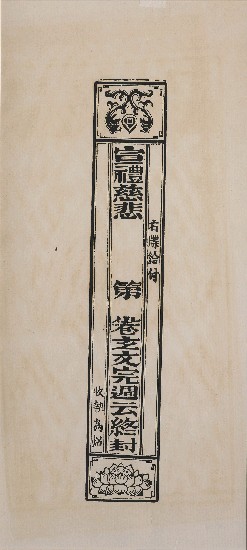 右牒給付
宣禮慈悲 第 卷玄文完週云終封
收執為照